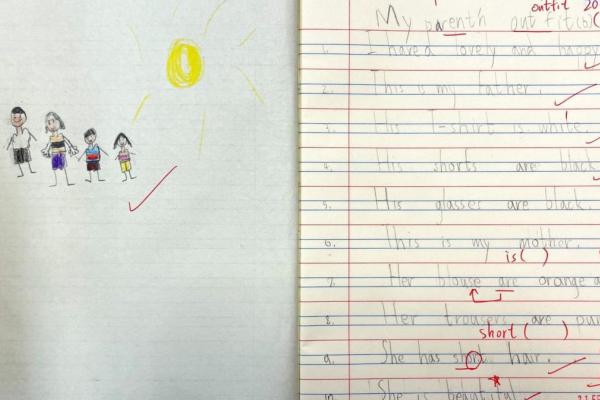 outfit 20
My parenth out fit(b)(
1. I have a lovely and happy
2. This is my father.
3. His T-shirt is white.
4. His shorts are black
5. His glasses are black.
6. This is my mother.
is( )
7. Her blouse are orange a
8. Her trousers are pur
short( )
9. She has hair.
10. She is beautiful